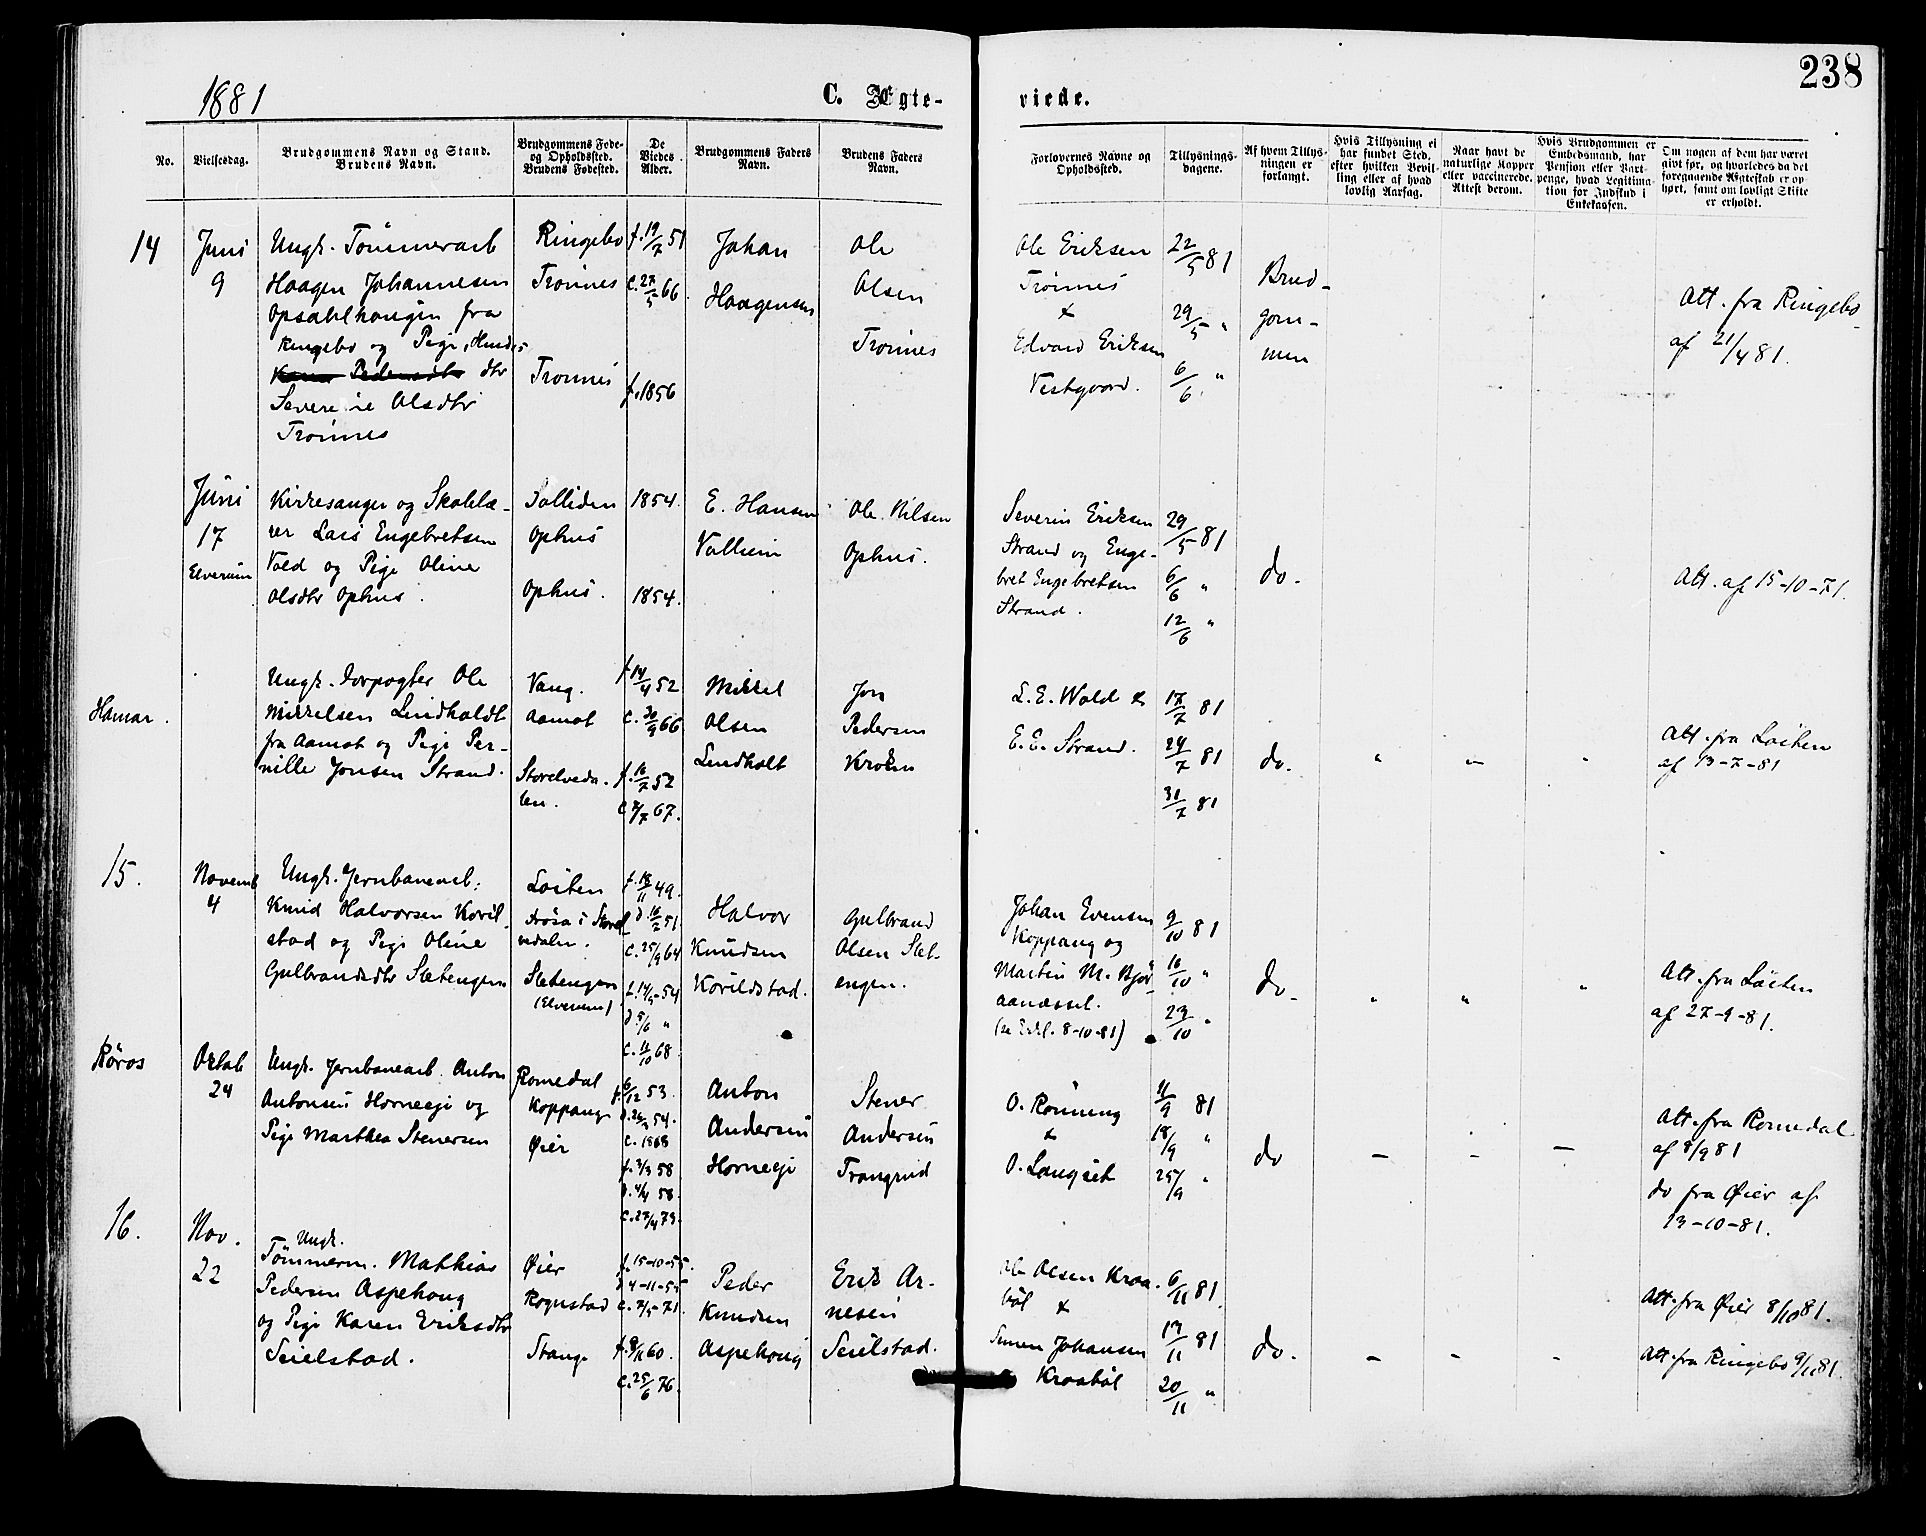 238
1881
C. Ægte-
viede.
No.
Vielsesdag.
Brudgommens Navn og Stand.
Brudens Navn.
Brudgommens Føde-
og Opholdssted.
Brudens Fødested.
De
Viedes
Alder.
Brudgommens Faders
Navn.
Brudens Faders
Navn.
Forlovernes Navne og
Opholdssted.
Tillysnings-
dagene.
Af hvem Tillys-
ningen er
forlangt.
Hvis Tillysning ei
har fundet Sted,
efter hvilken Bevil-
ling eller af hvad
lovlig Aarsag.
Naar havt de
naturlige Kopper
eller vaccinerede.
Attest derom.
Hvis Brudgommen er
Embedsmand, har
Pension eller Vart-
penge, hvad Legitima-
tion for Indskud i
Enkekassen.
Om nogen af dem har været
givt før, og hvorledes da det
foregaaende Ægteskab er op-
hørt, samt om lovligt Skifte
er erholdt.
14
Juni
9
Ungk. Tømmerarb
Haagen Johannesen
Opsahlhaugen fra
Ringebo og Pige,
dtr
Severine Olsdtr
Trønnes
Ringebo
Trønnes
Trønnes
f. 19/7 51
C. 27/5 66.
f. 1856
Johan
Haagensen
Ole
Olsen
Trønnes
Ole Eriksen
Trønnes
&
Edvard Eriksen
Vestgaard.
22/5 81
29/5 "
6/6 "
Brud-
gom-
men
Att. fra Ringebo
af 21/4 81.
Juni
17
Elverum
Kirkesanger og Skolelæ-
rer Lars Engebretsen
Vold og Pige Oline
Olsdtr Ophus.
Solliden
Ophus
Ophus.
1854.
1854.
E. Hansen
Ole Nilsen
Ophus.
Severin Eriksen
Strand og Enge-
bret Engebretsen
Strand.
29/5 81
6/6 "
12/6 "
do.
Att. af 15-10-71.
Hamar.
Ungk. Forpagter Ole
Mikkelsen Lindholdt
fra Aamot og Pige Per-
nille Jonsen Strand.
Vang.
Aamot
Storelveda-
len.
f. 14/4 52
C. 30/9 66
f. 16/7 52
C. 7/7 67.
Mikkel
Olsen
Lindholt
Jon
Pedersen
Kroken
L. E. Wold &
E. E. Strand.
17/7 81
24/7 81
31/7 81
do.
" " "
Att. fra Løiten
af 13-7-81
15.
Novemb
4
Ungk. Jernbanearb:
Knud Halvorsen Koril-
stad og Pige Oline
Gulbrandsdtr Sletengen
Løiten
Atrøa i Storel-
vedalen.
Sletengen
(Elverum)
f. 18/11 49.
d. 16/2 51.
C. 25/9 64
f. 14/5-54
d. 5/6 "
C. 11/10 68.
Halvor
Knudsen
Korildstad.
Gulbrand
Olsen Slet-
engen.
Johan Evensen
Koppang og
Martin M. Bjør-
aanæsset.
9/10 81
16/10 "
23/10 "
do.
" " "
Att. fra Løiten
af 27-9-81.
Røros
Oktob
24
Ungk. Jernbanearb. Anton
Antonsen Horneeje og
Pige Marthea Stenersen
Romedal
Koppang
Øier
f. 6/12 53.
C. 1868
f. 3/3 58
d. 4/4 58.
C. 27/4 73.
Anton
Andersen
Horneeje
Stener
Andersen
Trangrud
O. Rønning
&
O. Langset
11/9 81
18/9 "
25/9 "
do
- - -
Att. fra Romedal
af 8/9 81
do fra Øier af
13-10-81.
16.
Nov.
22
Ungk.
Tømmerm. Mathias
Pedersen Aspehaug
og Pige Karen Eriksdtr
Seielstad.
Øier
Rognstad
Stange
f. 15-10-55.
d 4-11-55
C. 7/5-71.
f. 9/11 60.
C. 25/6 76.
Peder
Knudsen
Aspehoug
Erik Ar-
nesen
Seielstad.
Ole Olsen Kraa-
bøl &
Simen Johansen
Kraabøl
6/11 81.
13/11 81
20/11 "
do.
- - -
Att. fra Øier 8/10 81.
Att. fra Ringebo 9/11 81.